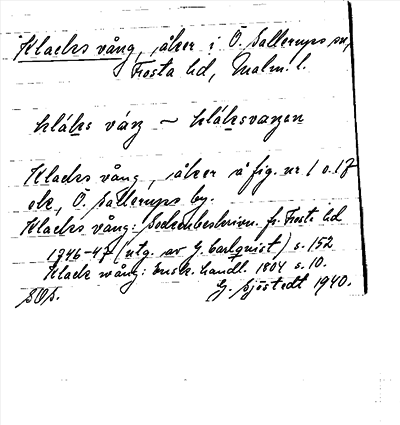 Klacks vång, åker i Ö. Sallerups sn,
Frosta hd, Malm. l.
klák̲s váŋ ~ klák̲svaŋen
Klacks vång, åker å fig. nr 1 o. 17
ek, Ö. Sallerups by.
Klacks vång: Sockenbeskrivn. fr. Frosta hd
1746-47 (utg. av G. Carlquist) s. 152
Klack wång: Ensk. handl. 1804 s. 10.
SOS. G. Sjöstedt 1940.